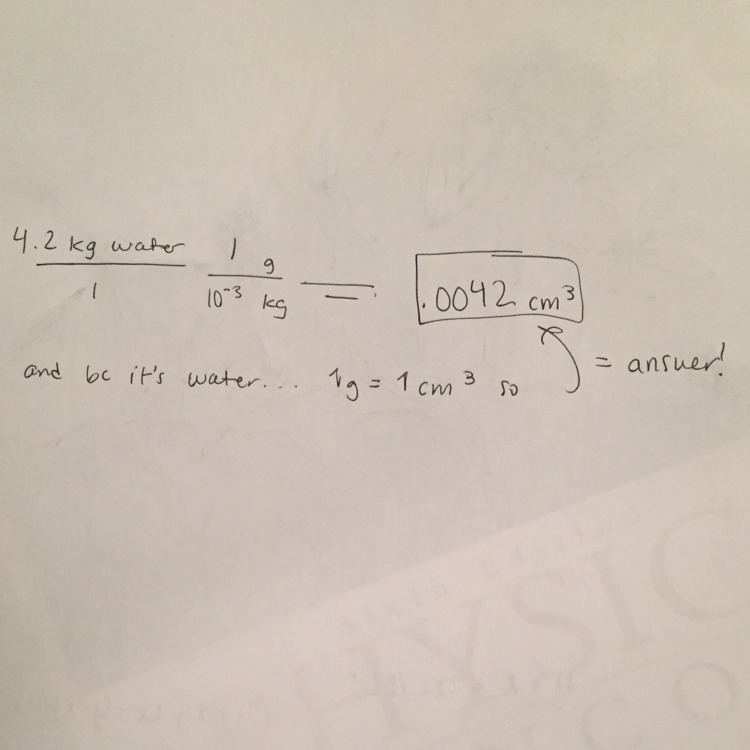 4.2 kg water / 1   1 g / 10⁻³ kg = .0042 cm³
and bc it's water... 1g = 1 cm³ so = answer!
Sixth Edition
HYSIC